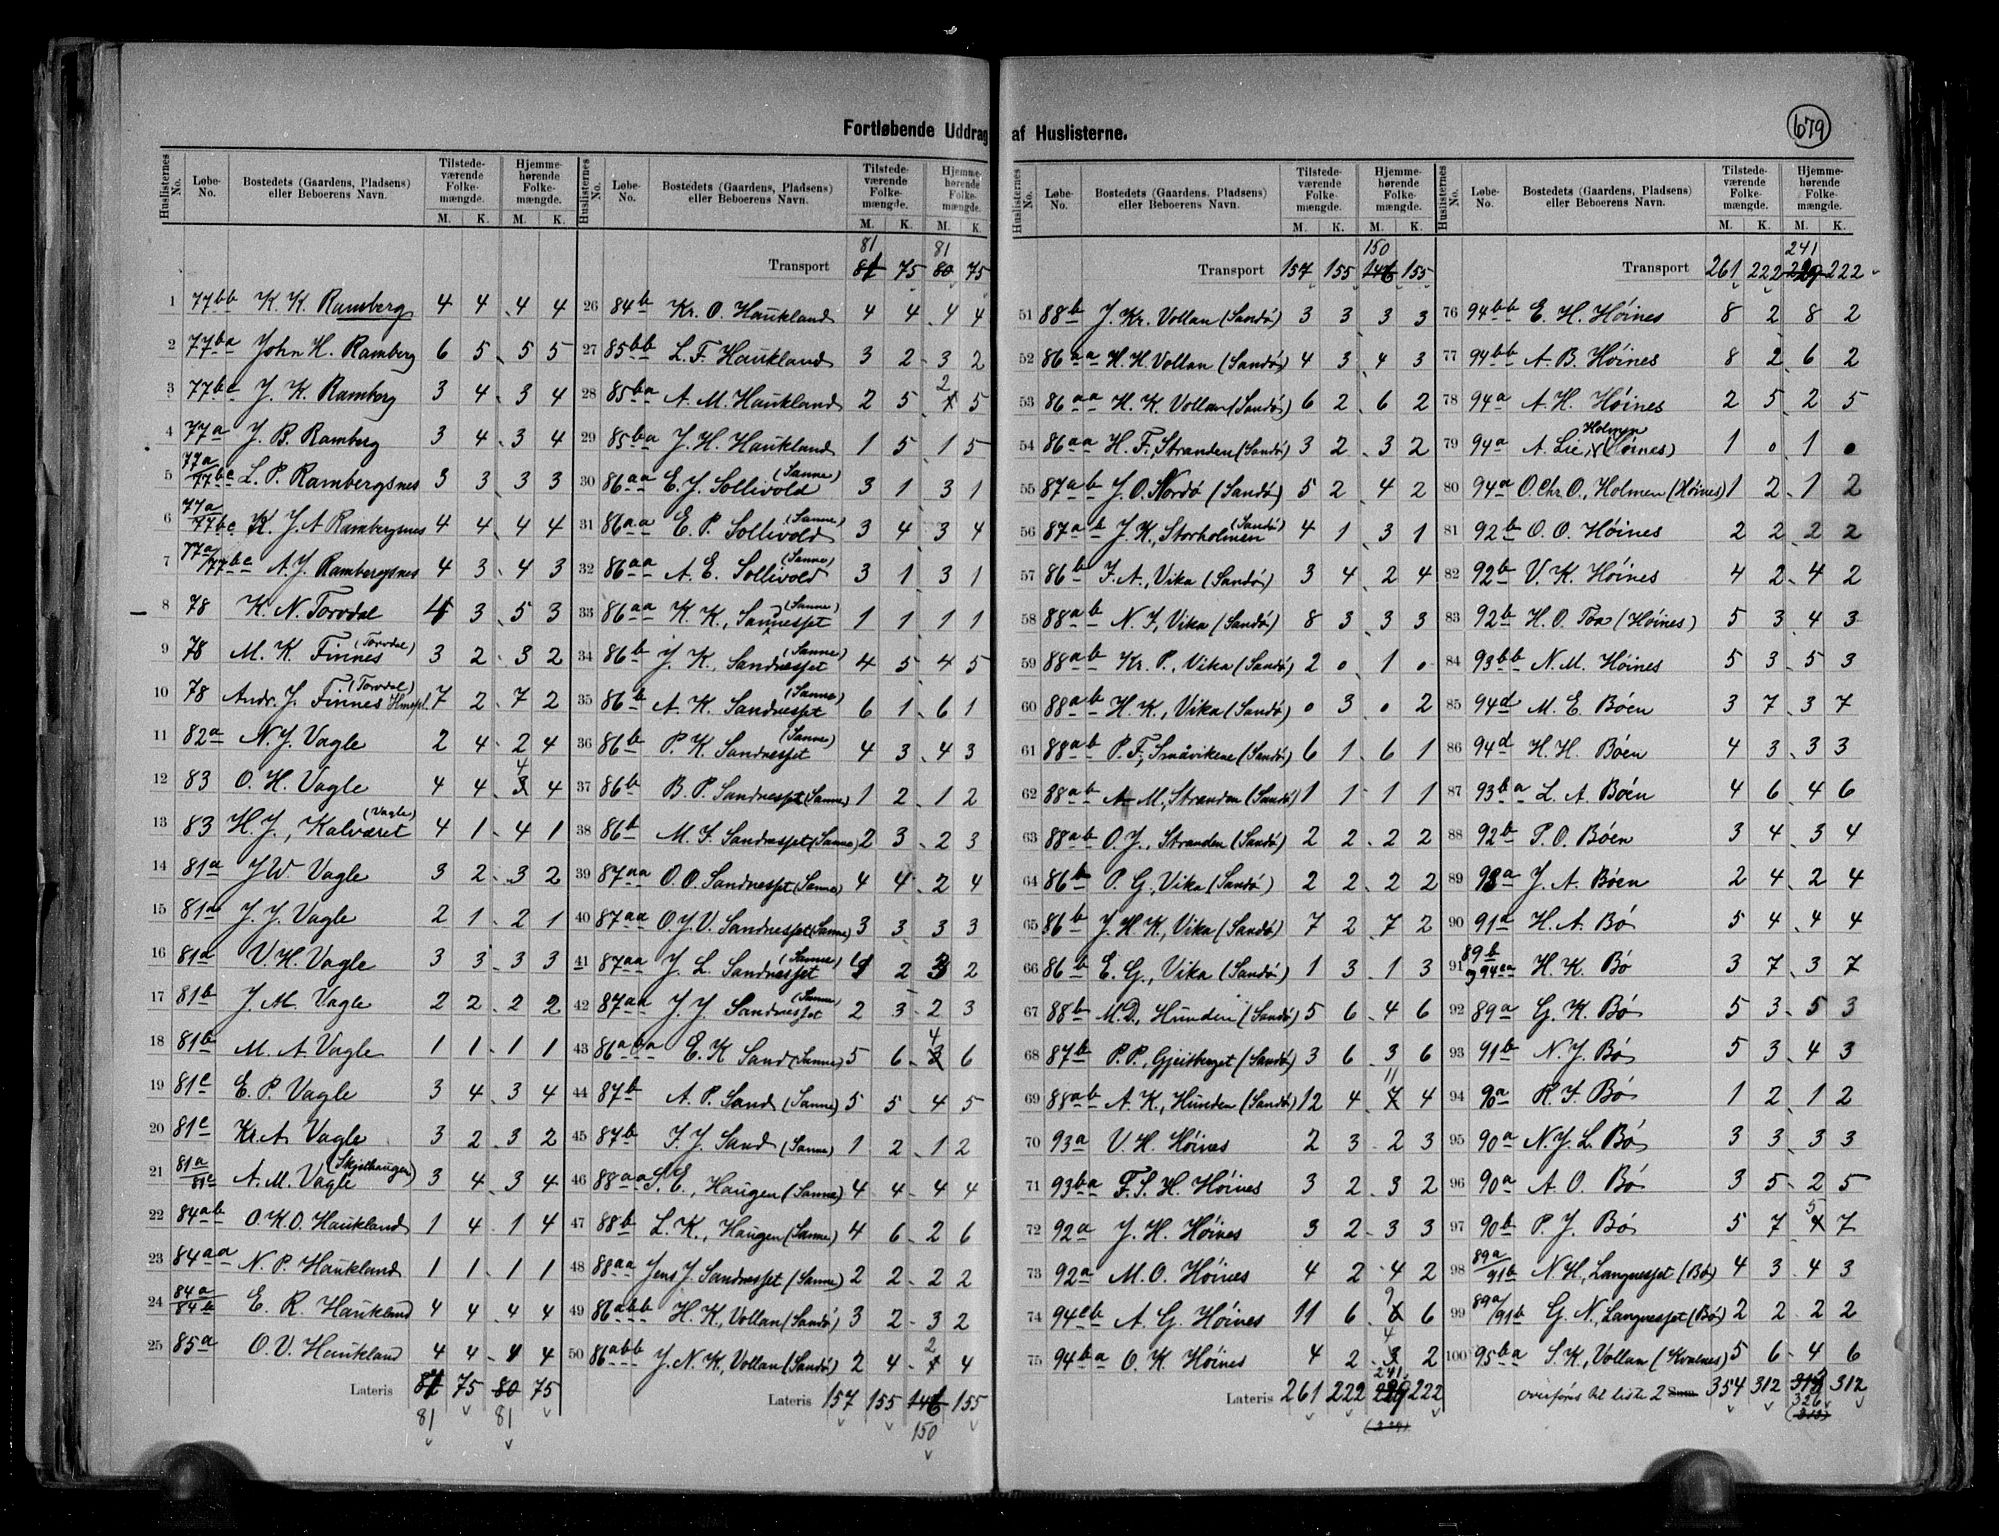 Fortløbende Uddrag af Huslisterne.
679
Huslisternes No. Løbe-No. Bostedets (Gaardens, Pladsens) eller Beboerens Navn. Tilstedeværende Folkemængde. M. K. Hjemmehørende Folkemængde. M. K.
1 77bb K. K. Ramberg 4 4 4 4
2 77ba John H. Ramberg 6 5 5 5
3 77bc J. K. Ramberg 3 4 3 4
4 77a J. B. Ramberg 3 4 3 4
5 77a/77bc L. P. Rambergsnes 3 3 3 3
6 77a/77bc K. J. A Rambergsnes 4 4 4 4
7 77a/77bc A. J. Rambergsnes 4 3 4 3
8 78 K. N. Torvdal 3 5 3
9 78 M. K. Finnes (Torvdal) 3 2 3 2
10 78 Andr. J. Finnes (Torvdal) 7 2 7 2
11 82a N. J. Vagle 2 4 2 4
12 83 O. H. Vagle 4 4 4 4
13 83 H. J., Kalværet (Vagle) 4 1 4 1
14 81a J W Vagle 3 2 3 2
15 81d J. J. Vagle 2 1 2 1
16 81d V. H. Vagle 3 3 3 3
17 81b J. M. Vagle 2 2 2 2
18 81b M. A. Vagle 1 1 1 1
19 81c E. P. Vagle 3 4 3 4
20 81c Kr. A. Vagle 3 2 3 2
21 81a/81c A. M. Vagle (Skjelhaugen) 3 4 3 4
22 84ab O. K. O. Haukland 1 4 1 4
23 84aa N. P. Haukland 1 1 1 1
24 84a/84b E. R. Haukland 4 4 4 4
25 85a O. V. Haukland 4 4 4 4
Lateris 81 75 80 75
81 81
Huslisternes No. Løbe-No. Bostedets (Gaardens, Pladsens) eller Beboerens Navn. Tilstedeværende Folkemængde. M. K. Hjemmehørende Folkemængde. M. K.
81 81
Transport 81 75 80 75
26 84b Kr. O. Haukland 4 4 4 4
27 85bb L. F. Haukland 3 2 3 2
28 85ba A. M. Haukland 2 5 2 5
29 85ba J. H. Haukland 1 5 1 5
30 86aa E. J. Sollivold (Sanne) 3 1 3 1
31 86aa E. P. Sollivold (Sanne) 3 4 3 4
32 86aa A. E. Sollivold (Sanne) 3 1 3 1
33 86aa K. K., Sannesset (Sanne) 1 1 1 1
34 86b J. K., Sandnesset (Sanne) 4 5 4 5
35 86b A. K. Sandnesset (Sanne) 6 1 6 1
36 86b P. K. Sandnesset (Sanne) 4 3 4 3
37 86b B. P. Sandnesset (Sanne) 1 2 1 2
38 86b M. J. Sandnesset (Sanne) 2 3 2 3
39 87aa O. O. Sandnesset (Sanne) 4 4 2 4
40 87aa O. J. V. Sandnesset (Sanne) 3 3 3 3
41 87aa J. L. Sandnesset (Sanne) 2 3 2
42 87aa J. J. Sandnesset (Sanne) 2 3 2 3
43 86aba E. K. Sand (Sanne) 5 6 4 6
44 87b A. P. Sand (Sanne) 5 5 4 5
45 87b J. J. Sand (Sanne) 1 2 1 2
46 88aa S. E., Haugen (Sanne) 4 4 4 4
47 88b L. K., Haugen (Sanne) 4 6 2 6
48 88aa Jens J. Sandnesset (Sanne) 2 2 2 2
49 86abb H. K., Vollan (Sandø) 3 2 3 2
50 86abb J. N. K., Vollan (Sandø) 2 4 2 4
Lateris 157 155 146 155
150
Huslisternes No. Løbe-No. Bostedets (Gaardens, Pladsens) eller Beboerens Navn. Tilstedeværende Folkemængde. M. K. Hjemmehørende Folkemængde. M. K.
150
Transport 157 155 146 155
51 88b J. Kr. Vollan (Sandø) 3 3 3 3
52 86aa H. H. Vollan (Sandø) 4 3 4 3
53 86aa H. K. Vollan (Sandø) 6 2 6 2
54 86aa H. F., Stranden (Sandø) 3 2 3 2
55 87ab J. O. Nordø (Sandø) 5 2 4 2
56 87ab J. K., Storholmen (Sandø) 4 1 3 1
57 86b J. A., Vika (Sandø) 3 4 2 4
58 88ab N. J., Vika (Sandø) 8 3 3 3
59 88ab Kr. P., Vika (Sandø) 2 0 1 0
60 88ab H. K., Vika (Sandø) 0 3 0 2
61 88ab P. F., Småvikene (Sandø) 6 1 6 1
62 88ab A. M., Stranden (Sandø) 1 1 1 1
63 88ab O. J., Stranden (Sandø) 2 2 2 2
64 86b P. G., Vika (Sandø) 2 2 2 2
65 86b J. H. K., Vika (Sandø) 7 2 7 2
66 86b E. G., Vika (Sandø) 1 3 1 3
67 88b M. D., Hunden (Sandø) 5 6 4 6
68 87b P. P., Gjeitberget (Sandø) 3 6 3 6
69 88ab A. K., Hunden (Sandø) 12 4 11 4
70 93a V. H. Høines 2 3 2 3
71 93ba F. S. H. Høines 3 2 3 2
72 92a J. H. Høines 3 2 3 3
73 92a M. O. Høines 4 2 4 2
74 94cb A. G. Høines 11 6 9 6
75 94ba O. K. Høines 4 2 4 2
241
Lateris 261 222 229 222
Huslisternes No. Løbe-No. Bostedets (Gaardens, Pladsens) eller Beboerens Navn. Tilstedeværende Folkemængde. M. K. Hjemmehørende Folkemængde. M. K.
241
Transport 261 222 229 222
76 94bb E. H. Høines 8 2 8 2
77 94bb A. B. Høines 8 2 6 2
78 94a A. H. Høines 2 5 2 5
79 94a A. Lie, Holmen (Høines) 1 0 1 0
80 94a O. Chr. O., Holmen (Høines) 1 2 1 2
81 92b O. O. Høines 2 2 2 2
82 92b V. K. Høines 4 2 4 2
83 92b H. O. Toa (Høines) 5 3 4 3
84 93bb N. M. Høines 5 3 5 3
85 94d M. E. Bøen 3 7 3 7
86 94d H. H. Bøen 4 3 3 3
87 93ba L. A. Bøen 4 6 4 6
88 92b P. O. Bøen 3 4 3 4
89 93a J. A. Bøen 2 4 2 4
90 91a H. A. Bø 5 4 4 4
91 89b og 94ca H. K. Bø 3 7 3 7
92 89a G. K. Bø 5 3 5 3
93 91b N. J. Bø 5 3 4 3
94 90a R. J. Bø 1 2 1 2
95 90a N. J. L. Bø 3 3 3 3
96 90a A. O. Bø 3 5 2 5
97 90b P. J. Bø 5 7 5 7
98 89a/91b N. H., Langnesset (Bø) 4 3 4 3
99 89a/91b G. N., Langnesset (Bø) 2 2 2 2
100 95ba S. K., Vollan (Kvalnes) 5 6 4 6
overføres til liste 2 Sum 354 312 313 312
326
(313)